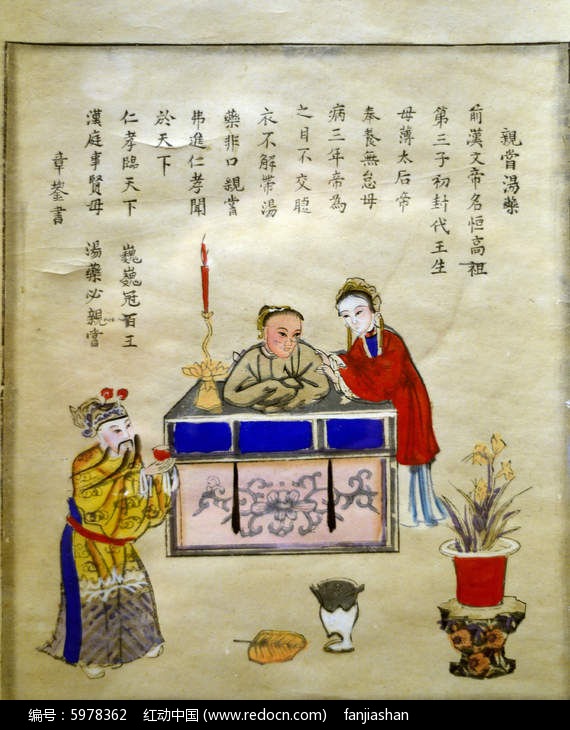 親嘗湯藥
前漢文帝名恒高祖
第三子初封代王生
母薄太后帝
奉養無怠母
病三年帝為
之目不交睫
衣不解帶湯
藥非口親嘗
弗進仁孝聞
於天下
仁孝臨天下 巍巍冠百王
漢庭事賢母 湯藥必親嘗
章鋆書
编号：5978362 红动中国 (www.redocn.com) fanjiashan